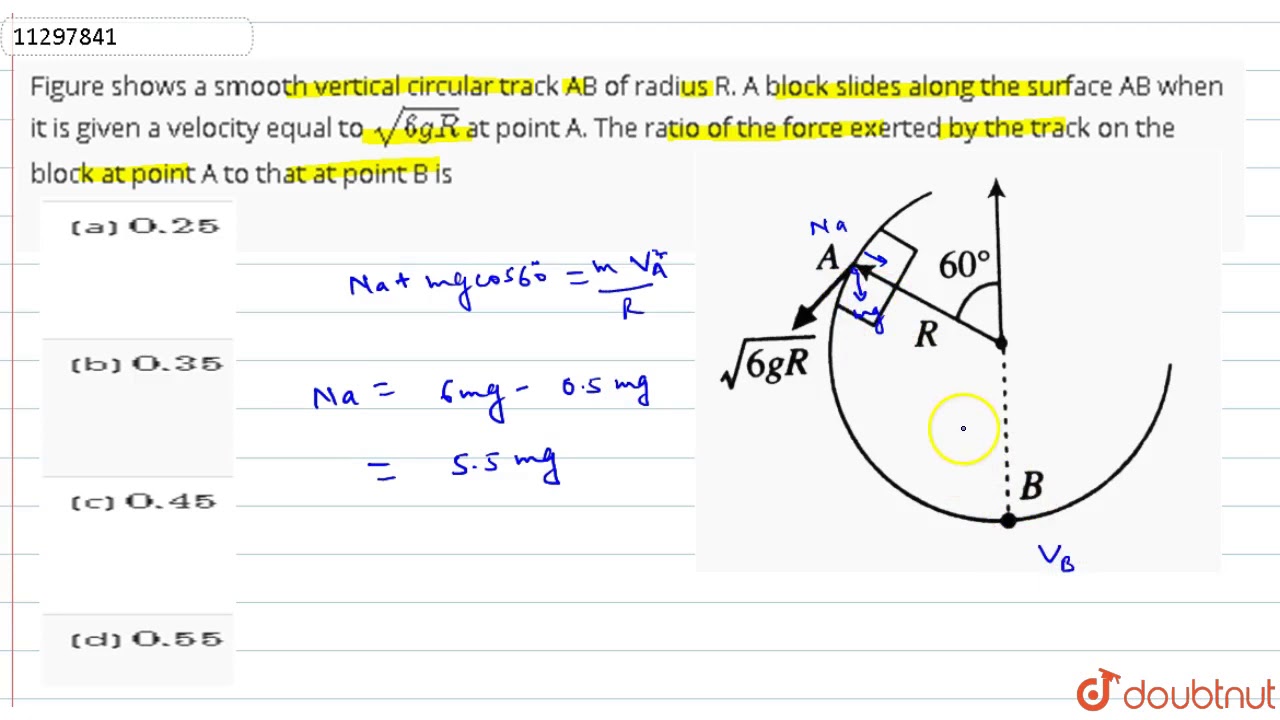 11297841
Figure shows a smooth vertical circular track AB of radius R. A block slides along the surface AB when
it is given a velocity equal to √6gR at point A. The ratio of the force exerted by the track on the
block at point A to that at point B is
(a) 0.25
(b) 0.35
(c) 0.45
(d) 0.55
Na + mg cos 60° = m V_A² / R
Na = 6mg - 0.5 mg
= 5.5 mg
Na
A
mg
60°
R
√6gR
B
V_B
doubtnut